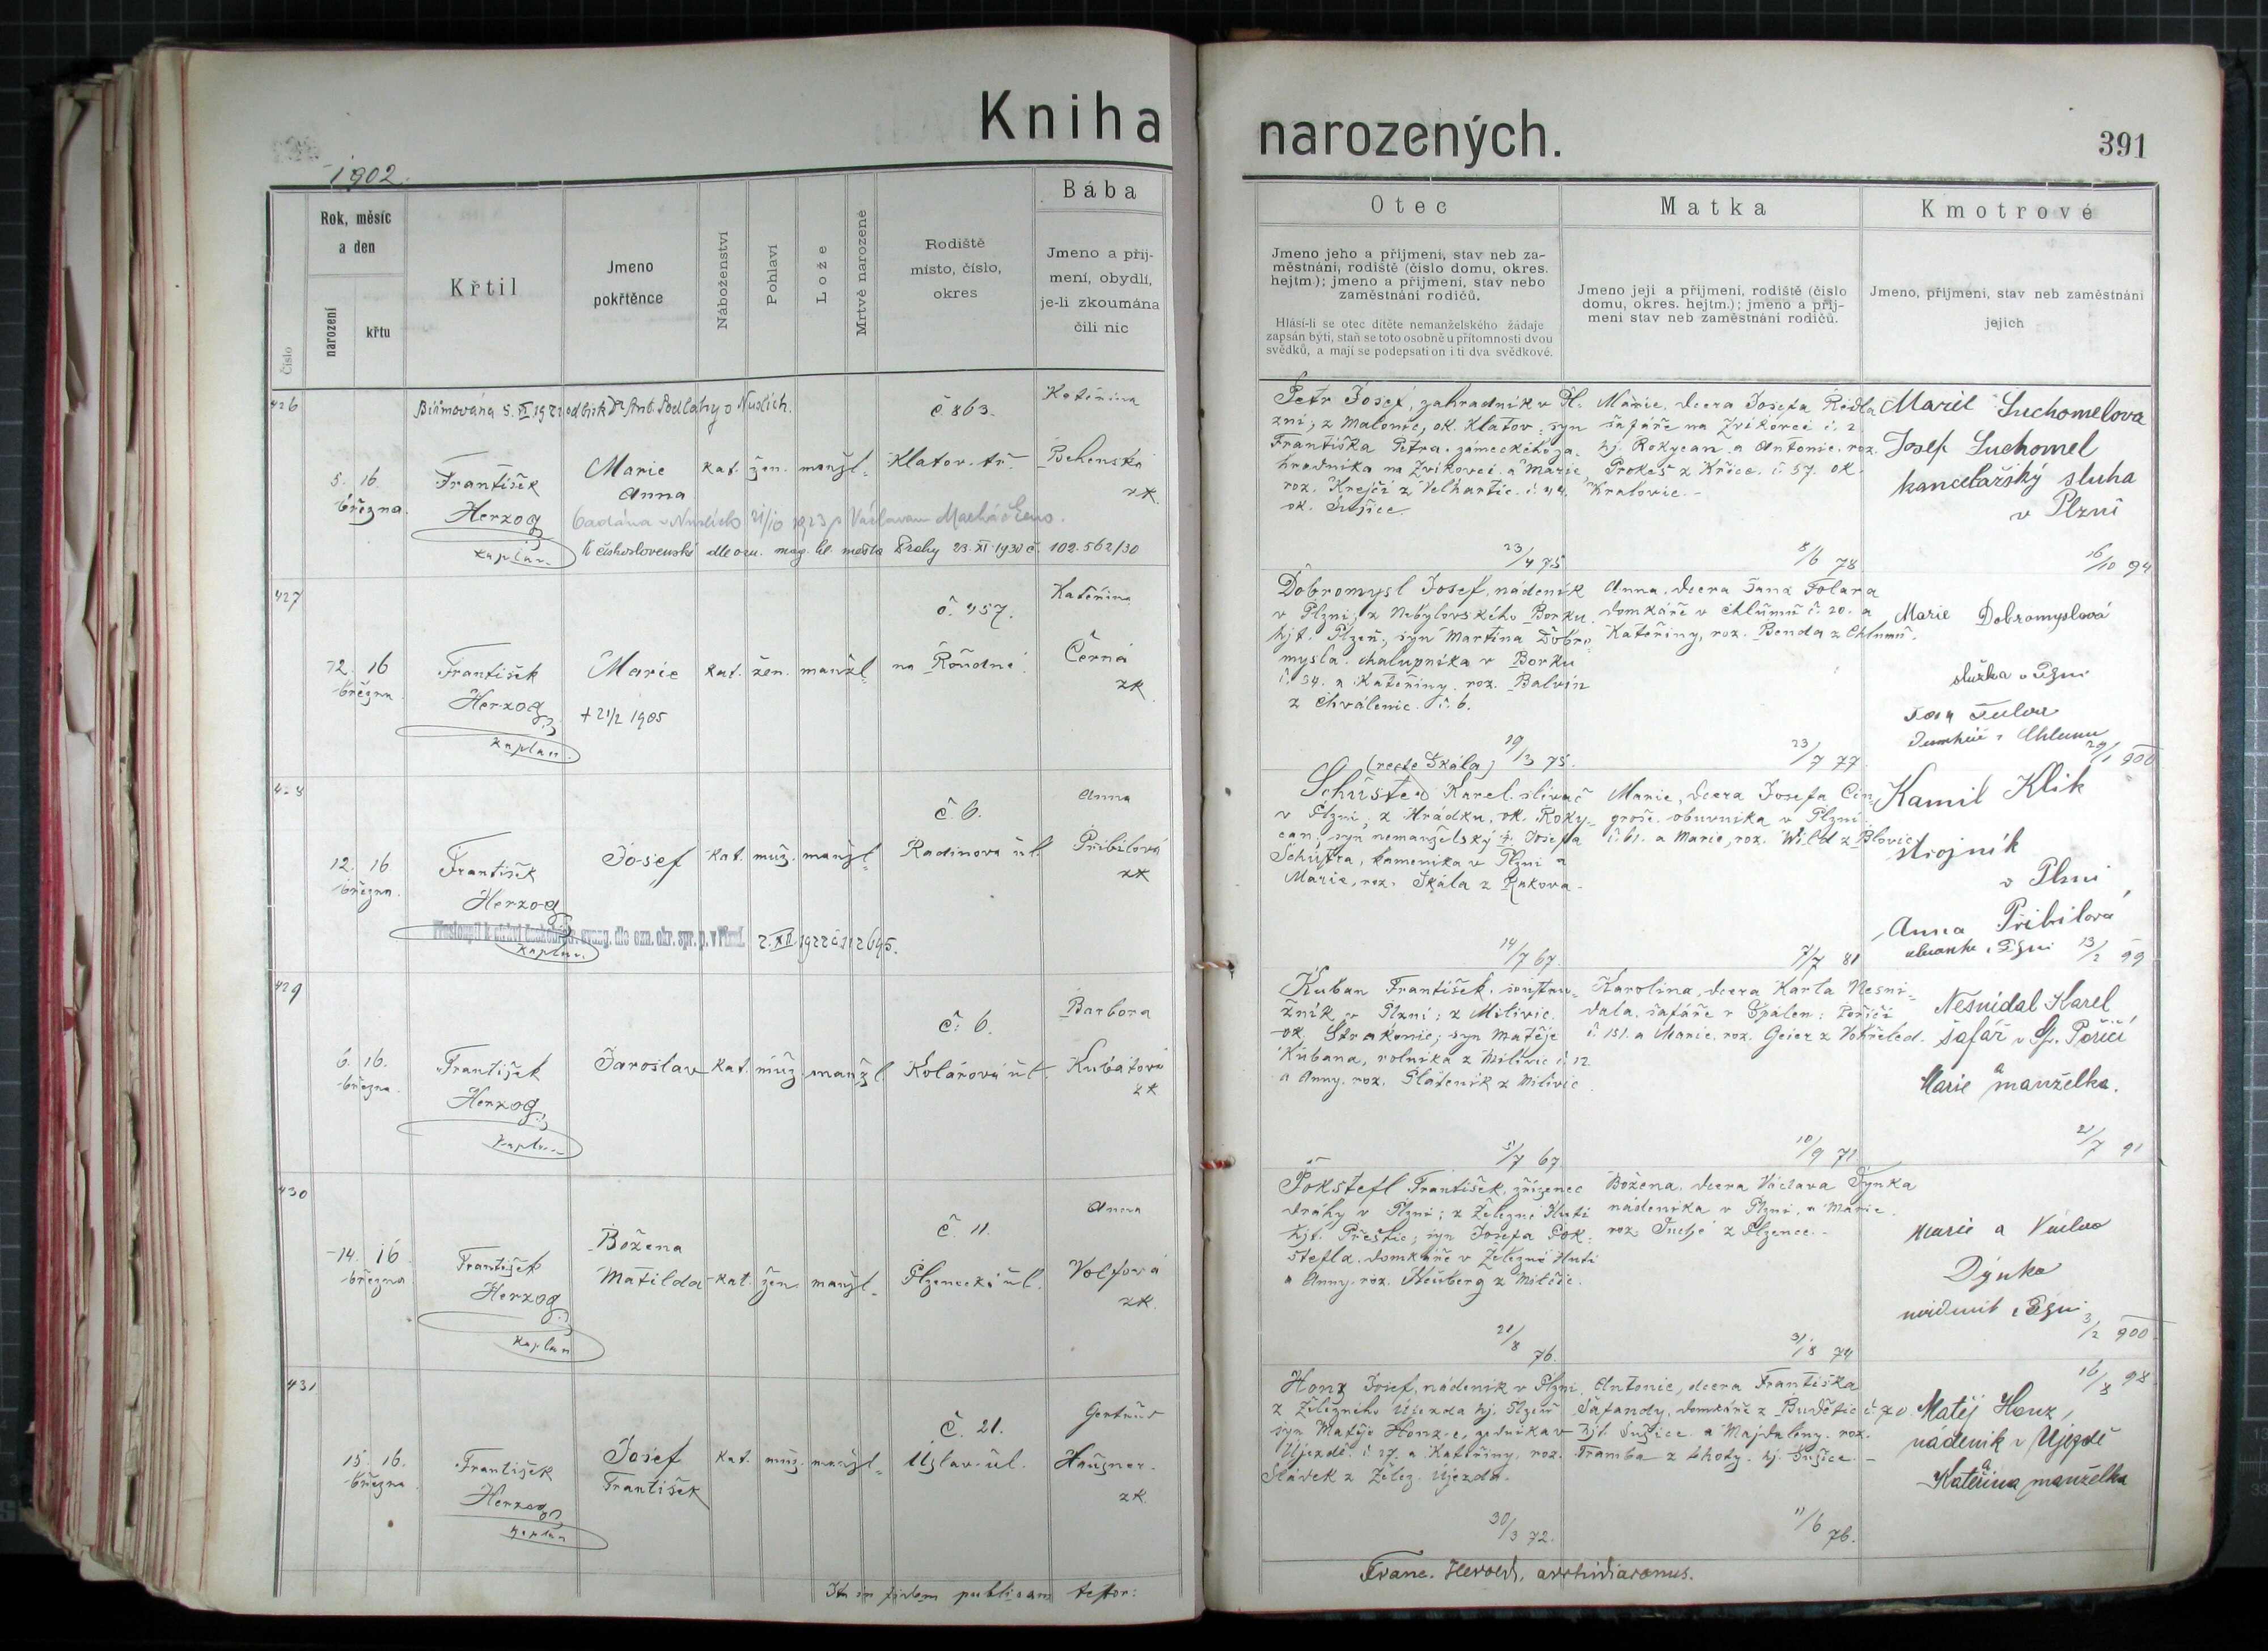 Kniha
narozených.
391
1902.
Číslo
Rok, měsíc
a den
narození
křtu
Křtil
Jmeno
pokřtěnce
Náboženství
Pohlaví
Lože
Mrtvě narozené
Rodiště
místo, číslo,
okres
Bába
Jmeno a příj-
mení, obydlí,
je-li zkoumána
čili nic
Otec
Jmeno jeho a příjmení, stav neb za-
městnání, rodiště (číslo domu, okres.
hejtm.); jmeno a příjmení, stav nebo
zaměstnání rodičů.
Hlásí-li se otec dítěte nemanželského žádaje
zapsán býti, staň se toto osobně u přítomnosti dvou
svědků, a mají se podepsati on i ti dva svědkové.
Matka
Jmeno její a příjmení, rodiště (číslo
domu, okres. hejtm.); jmeno a příj-
mení stav neb zaměstnání rodičů.
Kmotrové
Jmeno, příjmení, stav neb zaměstnání
jejich
426
Biřmována 5. XI 1922 Ant. Podlahy v Nuslích.
č. 863.
Kateřina
5. 16.
března
František
Herzog
kaplan
Marie
Anna
kat. žen. manžl.
Klatov. tř.
zk.
v Nuslích 21/10 1923 s Václavem
československé dle ozn. mag. hl. města Prahy 23. XI. 1930 č. 102.562/30
Petr Josef, zahradník v Pl-
zni; z Malonic, ok. Klatov; syn
Františka Petra, zámeckého za-
hradníka na Zvíkovci a Marie
roz. Krejčí z Velhartic č. 44.
ok. Sušice.
23/4 75
Marie, dcera Josefa Rédla
šafáře na Zvíkovci č. 2.
hj. Rokycan a Antonie, roz.
Prokeš z Křice č. 57. ok.
Kralovic.-
8/6 78
Marie Suchomelova
Josef Suchomel
kancelářský sluha
v Plzni
16/10 94
427
č. 457.
Kateřina
12. 16
března
František
Herzog
kaplan
Marie
+ 21/2 1905
kat. žen. manžl.
na Roudné
Černá
zk
Dobromysl Josef, nádeník
v Plzni; z Nebylovského Borku
hjt. Plzeň, syn Martina Dobro-
mysla, chalupníka v Borku
č. 34. a Kateřiny, roz. Balvín
z Chválenic č. 6.
19/3 75.
Anna, dcera Jana
domkáře v Chlumu č. 20. a
Kateřiny, roz. Benda z Chlumu.
23/7 77
Marie Dobromyslová
služka v Plzni
Jan
domkář z Chlumu
29/1 900
428
č. 6.
Anna
12. 16
března.
František
Herzog
kaplan
Josef
kat. muž. manžl.
Radinova ul.
Přibilová
zk
2. XII. 1922 č. 112695.
(recte Skála)
Schuster Karel, slivač
v Plzni, z Hrádku, ok. Roky-
can; syn nemanželský Josefa
Schustra, kameníka v Plzni a
Marie, roz. Skála z Rakova-
14/7 67.
Marie, dcera Josefa Cin-
groše, obuvníka v Plzni
č. 61. a Marie, roz. Wild z Blovic
7/7 81
Kamil Klik
strojník
v Plzni
Anna Přibilová
v Plzni
13/2 99
429
č. 6.
Barbora
6. 16.
března
František
Herzog
kaplan
Jaroslav
kat. muž. manžl.
Kolárova ul.
Kubátová
zk
Kuban František, soustru-
žník v Plzni; z Milivic
ok. Strakonic; syn Matěje
Kubana, rolníka z Milivic č. 12
a Anny, roz. Pláteník z Milivic
5/7 67
Karolina, dcera Karla Nesní-
dala, šafáře v Spálen. Poříčí
č. 151. a Marie, roz. Geier z Vokřeled.
10/9 71
Nesnídal Karel
šafář v Sp. Poříčí
a
Marie manželka.
21/7 91
430
č. 11.
Anna
14. 16
března
František
Herzog
kaplan
Božena
Matilda
kat. žen. manžl.
Plzenecká ul.
Volfová
zk.
Pokstefl František, zřízenec
dráhy v Plzni; z Železné Huti
hjt. Přeštic; syn Josefa Pok-
stefla, domkáře v Železné Huti
a Anny, roz. Heuberg z Mitěšic.
21/8 76.
Božena, dcera Václava Dýnka
nádeníka v Plzni, a Marie
roz. Suché z Plzence.-
31/8 74
Marie a Václav
Dýnka
nádeník v Plzni
3/2 900
431
č. 21.
Gertrud
15. 16.
března
František
Herzog
kaplan
Josef
František
kat. muž. manžl.
Úslav. ul.
Hausner.
zk.
Honz Josef, nádeník v Plzni
z Železného Újezda hj. Plzeň
syn Matěje Honze, sedníka v
Újezdě č. 27. a Kateřiny, roz.
Slávek z Želez. Újezda.
30/3 72.
Antonie, dcera Františka
Šafandy, domkáře z Budětic č. 70.
hjt. Sušice a Majdaleny, roz.
Tramba z Lhoty, hj. Sušice.-
11/6 76.
16/8 98
Matěj Honz,
nádeník v Újezdě
a
Kateřina manželka
Ita in fidem publicam testor:
Franc. Herold, archidiaconus.